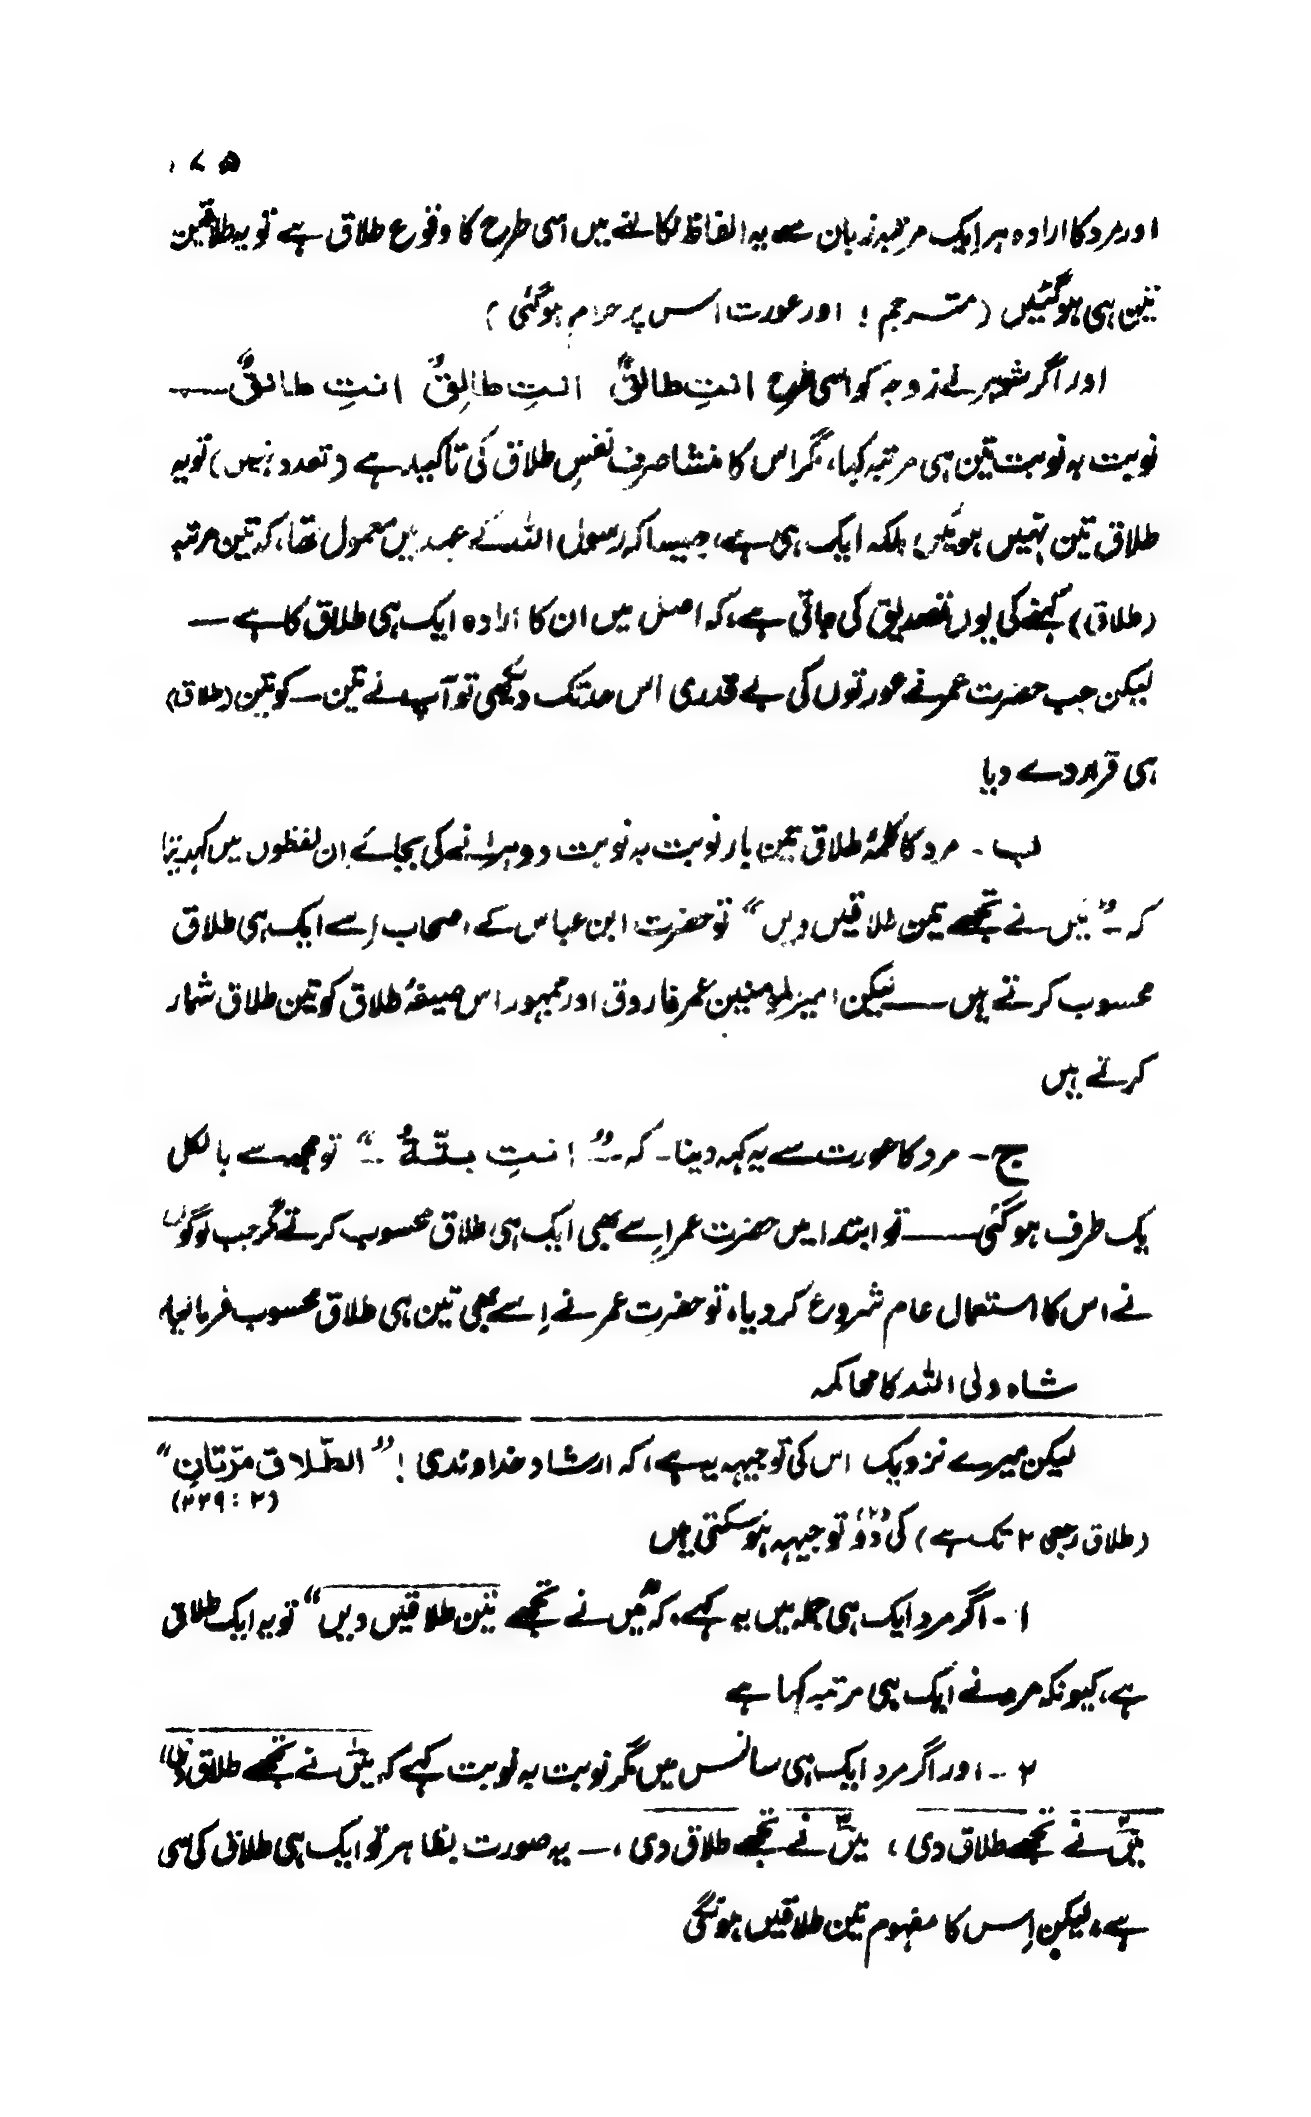 ۱۷۵
اور مرد کا ارادہ ہر ایک مرتبہ زبان سے یہ الفاظ نکالنے میں اسی طرح کا وقوع طلاق ہے تو یہ طلاقیں
تین ہی ہوگئیں (مترجم ! اور عورت اس پر حرام ہوگئی)
اور اگر شوہر نے زوجہ کو اسی طرح انتِ طالقٌ انتِ طالِقٌ انتِ طالقٌ ——
نوبت بہ نوبت تین ہی مرتبہ کہا، مگر اس کا منشا صرف نفسِ طلاق کی تاکید ہے (تعدد نہیں) تو یہ
طلاق تین نہیں ہوئیں، بلکہ ایک ہی ہے، جیسا کہ رسول اللہ کے عہد میں معمول تھا، کہ تین مرتبہ
(طلاق) کہنے کی یوں تصدیق کی جاتی ہے، کہ اصل میں ان کا ارادہ ایک ہی طلاق کا ہے —
لیکن جب حضرت عمر نے عورتوں کی بے قدری اس حد تک دیکھی تو آپ نے تین — کو تین (طلاق)
ہی قرار دے دیا
ب - مرد کا کلمۂ طلاق تین بار نوبت بہ نوبت دوہرانے کی بجائے ان لفظوں میں کہدینا
کہ — ” میں نے تجھے تین طلاقیں دیں “ تو حضرت ابن عباس کے اصحاب اِسے ایک ہی طلاق
محسوب کرتے ہیں —— لیکن امیر المومنین عمر فاروق اور جمہور اس صیغۂ طلاق کو تین طلاق شمار
کرتے ہیں
ج - مرد کا عورت سے یہ کہہ دینا - کہ — ” انتِ بتّۃٌ — “ تو مجھ سے بالکل
یک طرف ہوگئی —— تو ابتدا میں حضرت عمر اِسے بھی ایک ہی طلاق محسوب کرتے مگر جب لوگوں
نے اس کا استعمال عام شروع کر دیا، تو حضرت عمر نے اِسے بھی تین ہی طلاق محسوب فرمالیا،
شاہ ولی اللہ کا محاکمہ
لیکن میرے نزدیک اس کی توجیہہ یہ ہے، کہ ارشاد خداوندی ! ” الطّلاق مرّتانِ “
(۲ : ۲۲۹)
(طلاق رجعی ۲ تک ہے) کی دو (۲) توجیہہ ہوسکتی ہیں
۱ - اگر مرد ایک ہی جملہ میں یہ کہے، کہ ”میں نے تجھے تین طلاقیں دیں“ تو یہ ایک طلاق
ہے، کیونکہ مرد نے ایک ہی مرتبہ کہا ہے
۲ - اور اگر مرد ایک ہی سانس میں مگر نوبت بہ نوبت کہے کہ میں نے تجھے طلاق دی
میں نے تجھے طلاق دی ، میں نے تجھے طلاق دی ، — یہ صورت بظاہر تو ایک ہی طلاق کی سی
ہے، لیکن اِس کا مفہوم تین طلاقیں ہونگی